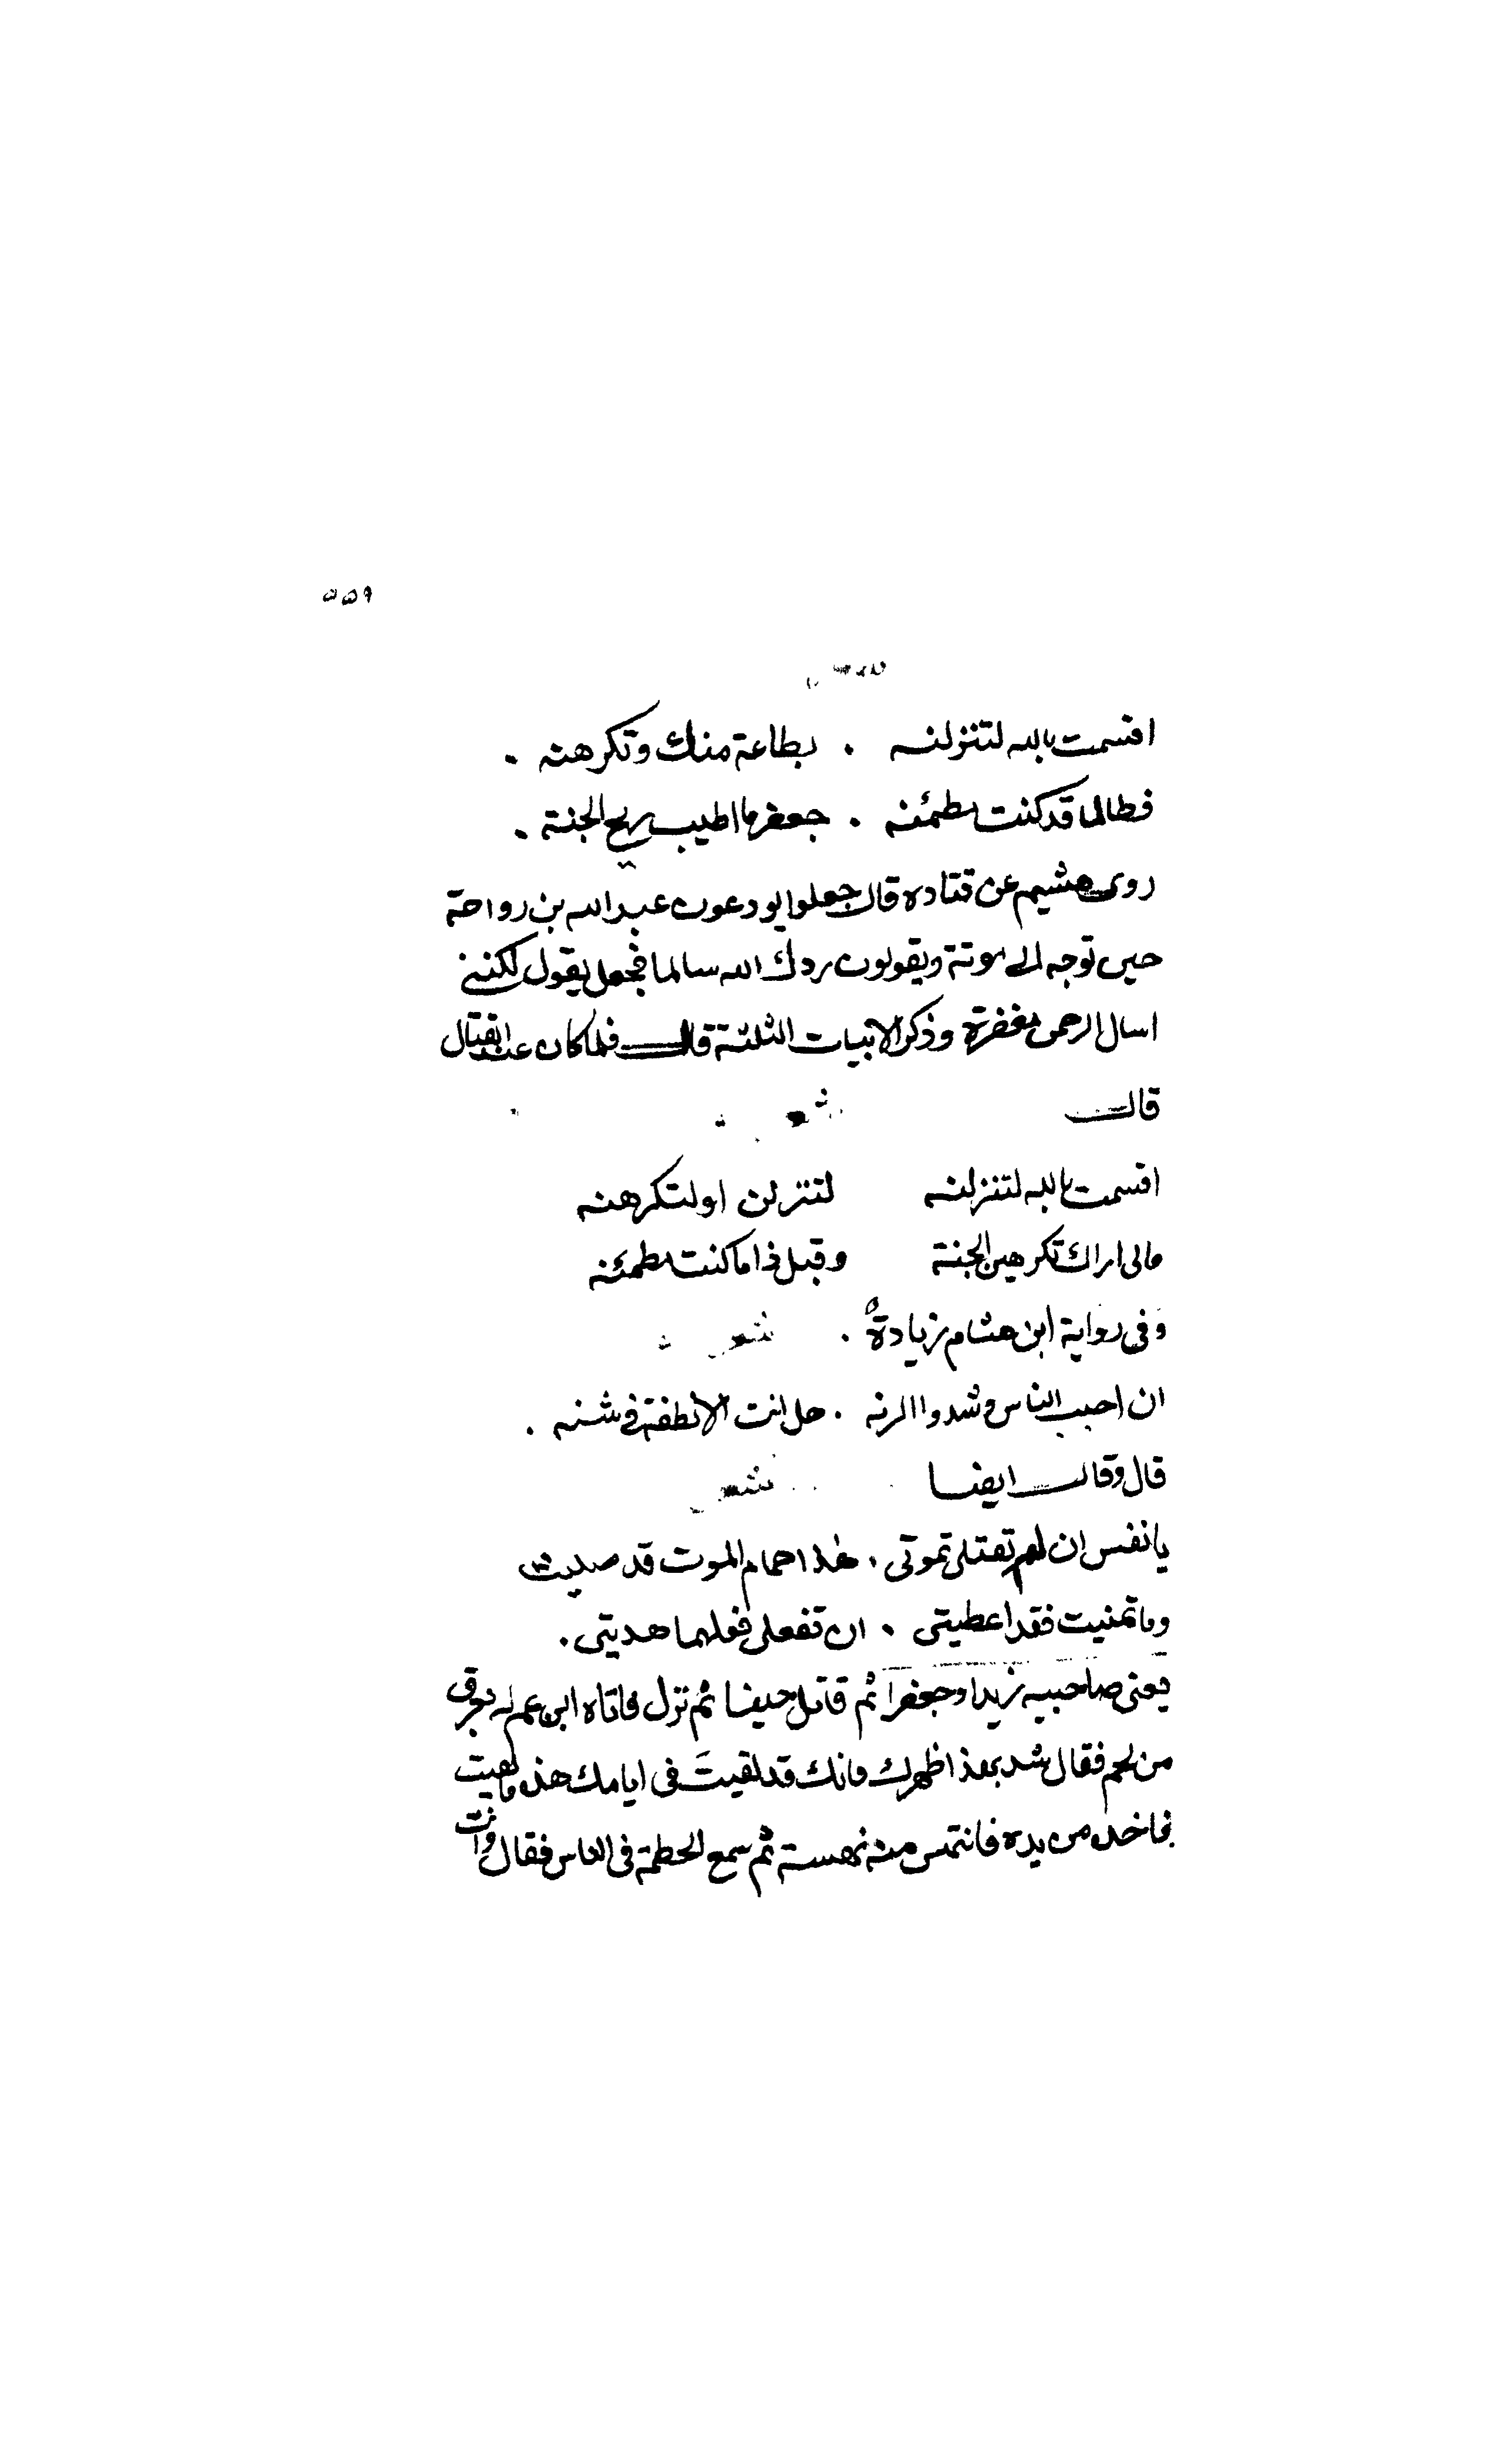 ٥٥٩
اقسمت بالله لتنزلنه . بطاعة منك وتكرهنه .
فطالما قد كنت مطمئنه . جعفر ما اطيب ريح الجنة .
روى هشيم عن قتاده قال جعلوا يودعون عبد الله بن رواحة
حين توجه الى موتة ويقولون ردك الله سالما فجعل يقول لكننى
اسال الرحمن مغفرة وذكر الابيات الثلثة قال فلما كان عند القتال
قال شعر
اقسمت بالله لتنزلنه لتنزلن او لتكرهنه
مالى اراك تكرهين الجنة وقبل ذا ما كنت مطمئنه
وفى رواية ابن هشام زيادة . شعر
ان احبب الناس وشدوا الرنه . هل انت الا نطفة فى شنه .
قال وقال ايضا شعر
يا نفس ان لم تقتلى تموتى . هذا حمام الموت قد صليت
وما تمنيت فقد اعطيتى . ان تفعلى فعلهما هديتى .
يعنى صاحبيه زيدا وجعفرا ثم قاتل حينا ثم نزل فاتاه ابن عم له بعرق
من لحم فقال شد بهذا ظهرك فانك قد لقيت فى ايامك هذه ما لقيت
فاخذه من يده فانتهس منه نهسة ثم سمع الحطمة فى الناس فقال وانت